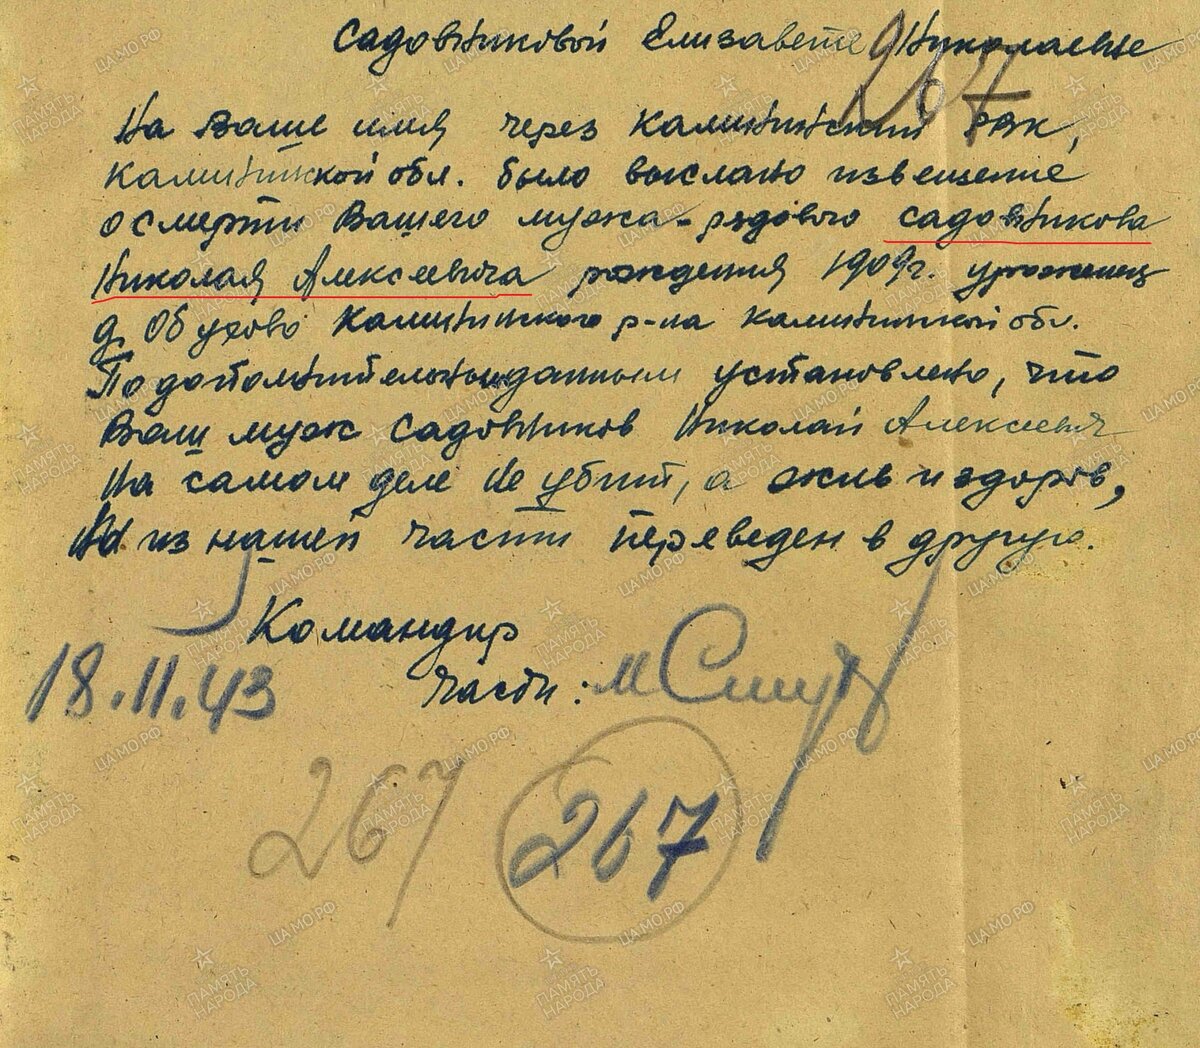 Садовниковой Елизавете Николаевне
267
На Ваше имя через Калининский РВК,
Калининской обл. было выслано извещение
о смерти Вашего мужа - рядового Садовникова
Николая Алексеевича рождения 1909г. уроженец
д. Обухово Калининского р-на Калининской обл.
По дополнительным данным установлено, что
Ваш муж Садовников Николай Алексеевич
на самом деле не убит, а жив и здоров,
из нашей части переведен в другую.
Командир
части:
18.11.43
267
267
ПАМЯТЬ НАРОДА
ЦАМО.РФ